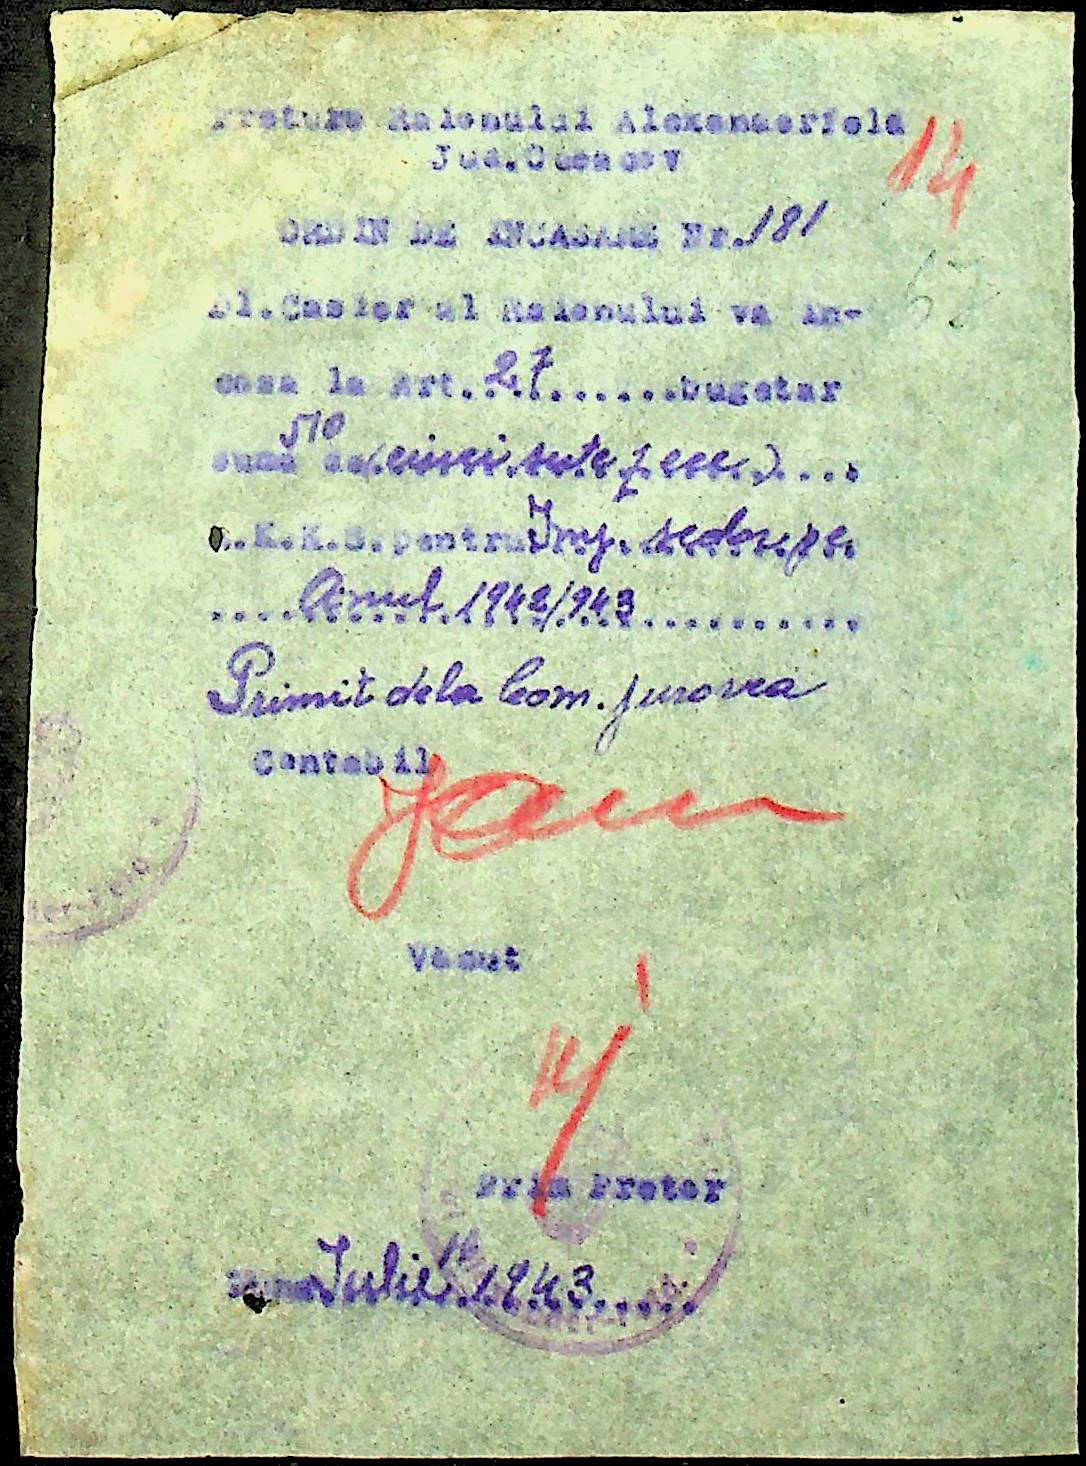 Pretura Raionului Alexanderfeld
14
Jud. Oceacov
ORDIN DE INCASARE Nr. 181
67
Dl. Casier al Raionului va in-
casa la Art. 27 ......bugetar
510
suma de (cinci sute zece)....
R.K.K.S. pentru Imp. pe
....Anul 1942/943...........
Primit dela Com. Jurovca
Contabil
Vazut
Prim Pretor
Iulie 16 1943.....